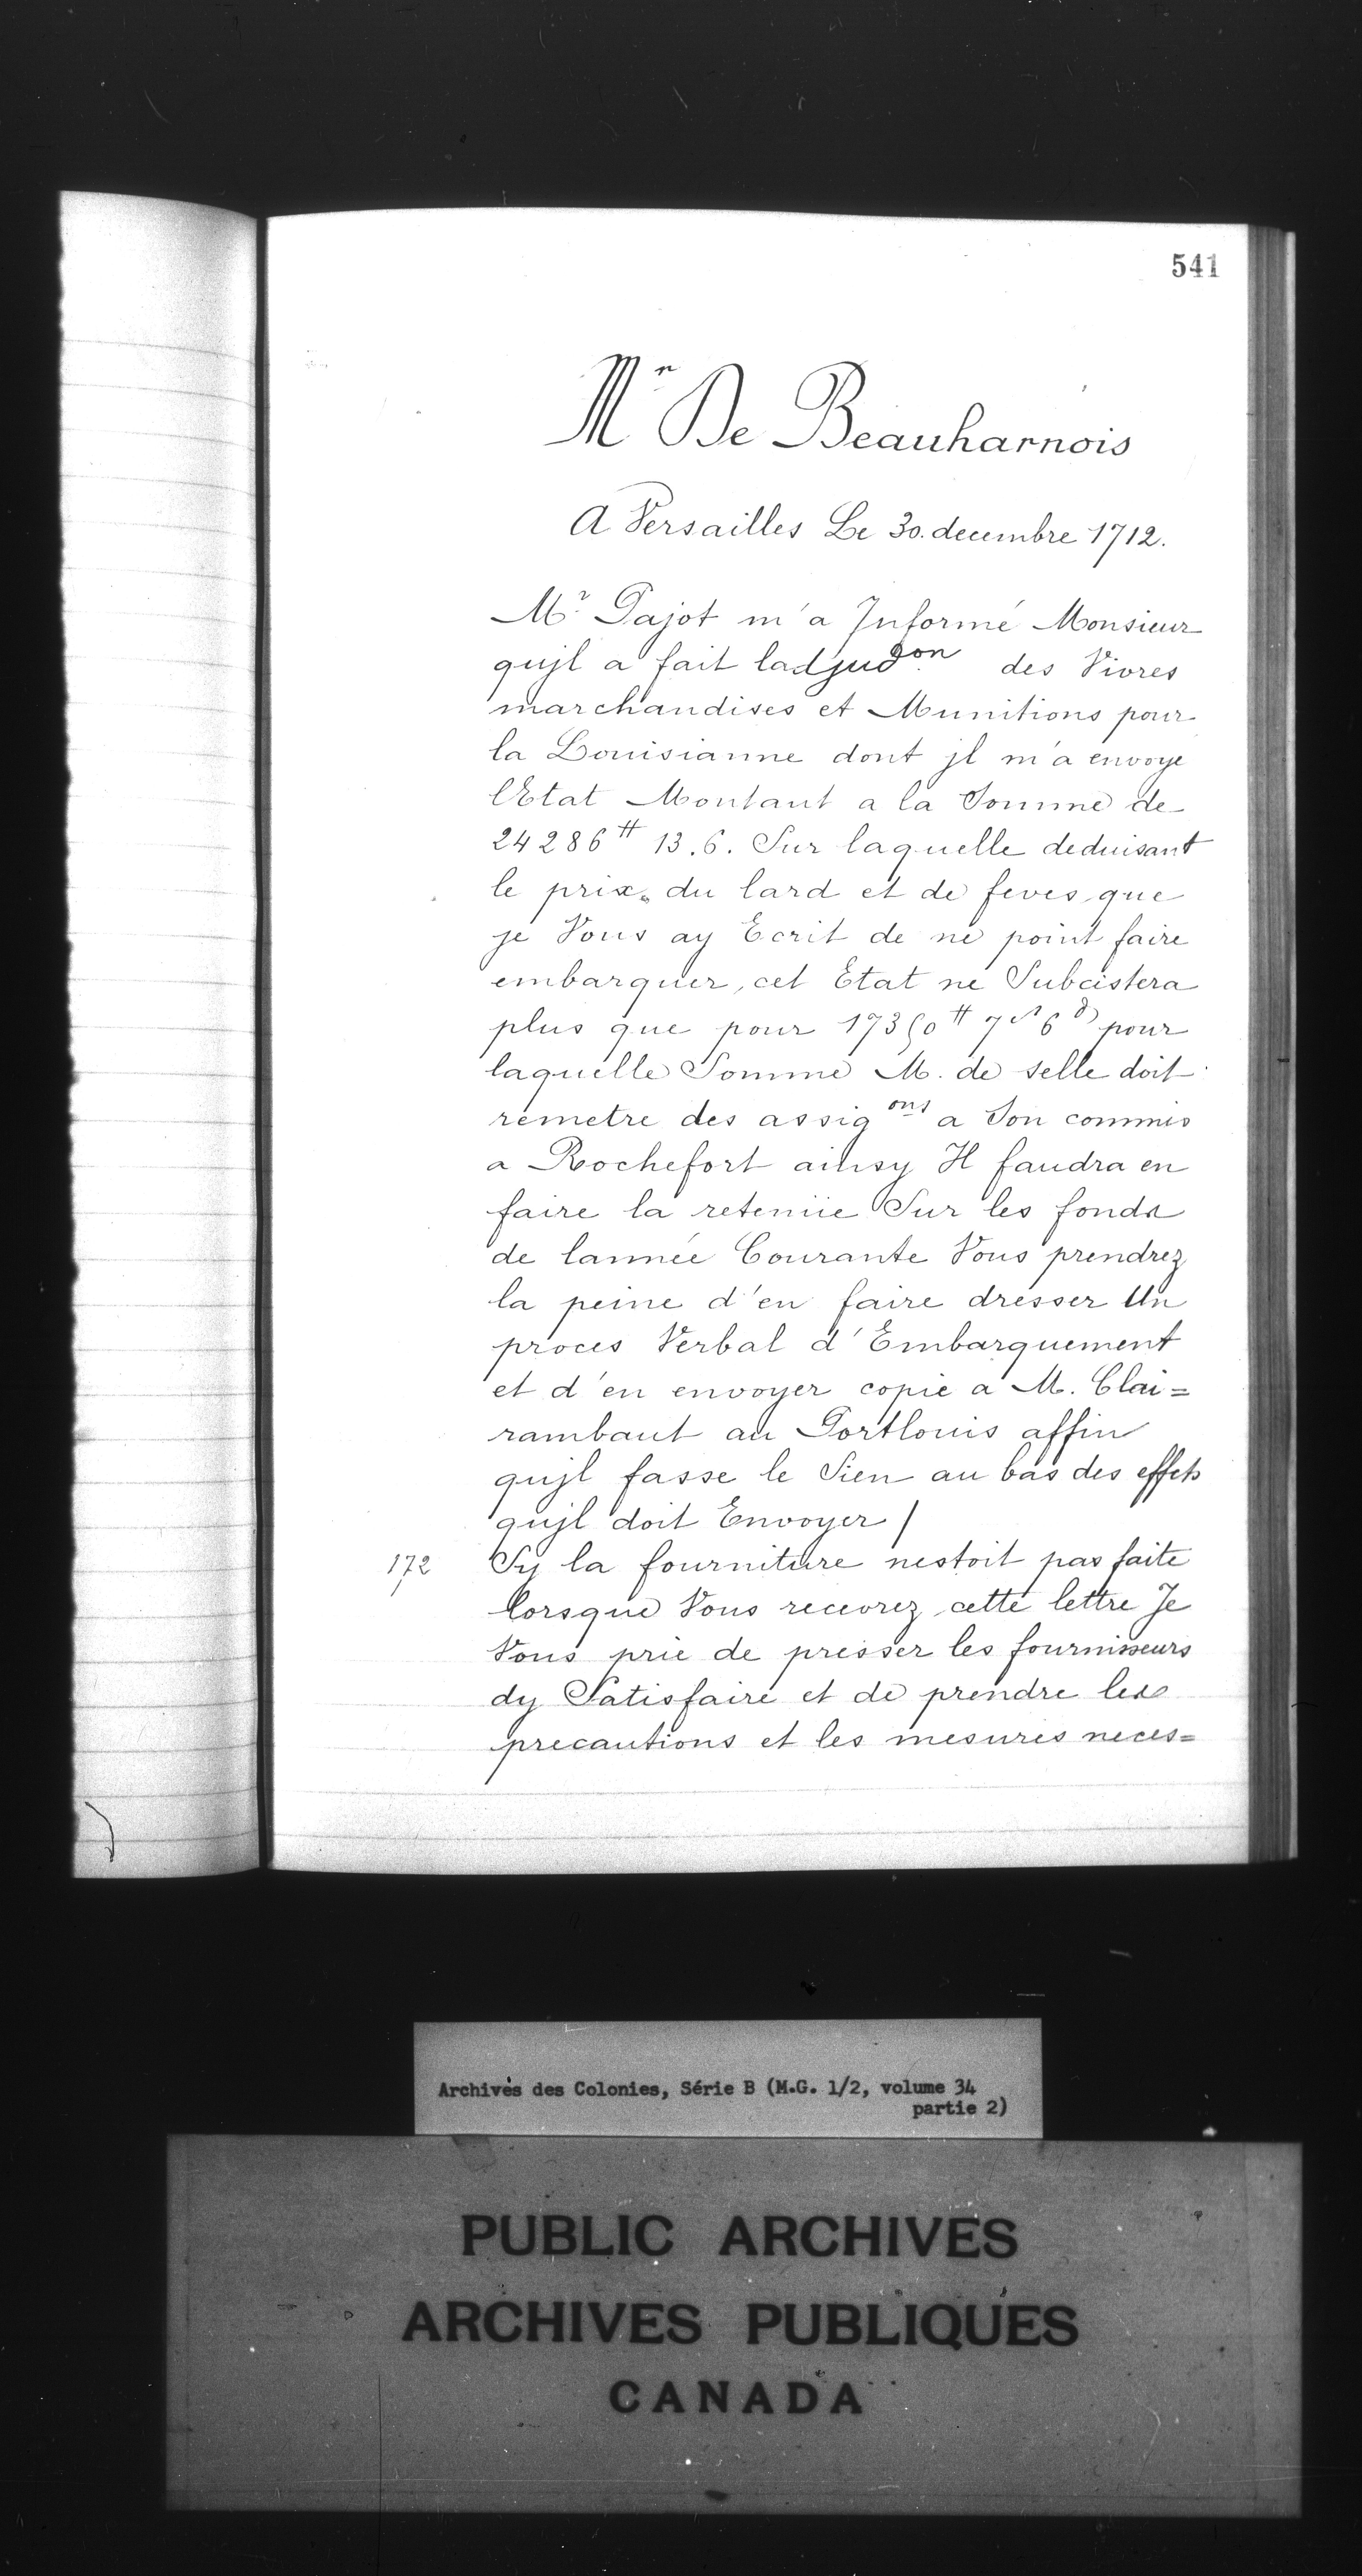 541
Mr De Beauharnois
A Versailles Le 30. decembre 1712.
Mr. Pajot m'a Informé Monsieur
qujl a fait ladjudon. des Vivres
marchandises et Munitions pour
la Louisianne dont jl m'a envoye
l'Etat Montant a la Somme de
24286tt 13.6. Sur laquelle deduisant
le prix du lard et de feves que
je Vous ay Ecrit de ne point faire
embarquer, cet Etat ne Subcistera
plus que pour 17350tt 7s 6d pour
laquelle Somme M. de Selle doit
remetre des assigons a Son commis
a Rochefort ainsy Il faudra en
faire la retenüe Sur les fonds
de lannée Courante Vous prendrez
la peine d'en faire dresser Un
proces Verbal d'Embarquement
et d'en envoyer copie a M. Clai=
rambaut au Portlouis affin
qujl fasse le Sien au bas des effets
qujl doit Envoyer /
172 Sy la fourniture nestoit pas faite
lorsque Vous recevrez cette lettre Je
Vous prie de presser les fournisseurs
dy Satisfaire et de prendre les
precautions et les mesures neces=
Archives des Colonies, Série B (M.G. 1/2, volume 34
partie 2)
PUBLIC ARCHIVES
ARCHIVES PUBLIQUES
CANADA